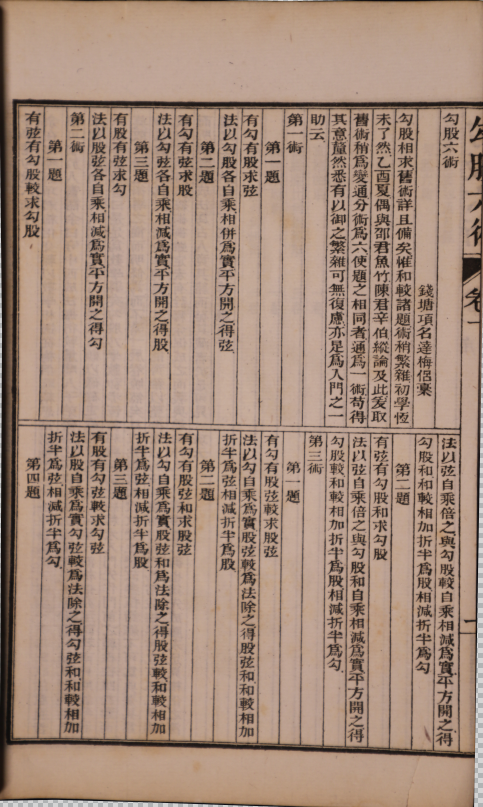 勾股六術
錢塘項名達梅侶稾
勾股相求舊術詳且備矣惟和較諸題術稍繁雜初學恆
未了然乙酉夏偶與邵君魚竹陳君辛伯縱論及此爰取
舊術稍爲變通分術爲六使題之相同者通爲一術苟得
其意釐然悉有以御之繁雜可無復慮亦足爲入門之一
助云
第一術
第一題
有勾有股求弦
法以勾股各自乘相併爲實平方開之得弦
第二題
有勾有弦求股
法以勾弦各自乘相減爲實平方開之得股
第三題
有股有弦求勾
法以股弦各自乘相減爲實平方開之得勾
第二術
第一題
有弦有勾股較求勾股
法以弦自乘倍之與勾股較自乘相減爲實平方開之得
勾股和和較相加折半爲股相減折半爲勾
第二題
有弦有勾股和求勾股
法以弦自乘倍之與勾股和自乘相減爲實平方開之得
勾股較和較相加折半爲股相減折半爲勾
第三術
第一題
有勾有股弦較求股弦
法以勾自乘爲實股弦較爲法除之得股弦和和較相加
折半爲弦相減折半爲股
第二題
有勾有股弦和求股弦
法以勾自乘爲實股弦和爲法除之得股弦較和較相加
折半爲弦相減折半爲股
第三題
有股有勾弦較求勾弦
法以股自乘爲實勾弦較爲法除之得勾弦和和較相加
折半爲弦相減折半爲勾
第四題